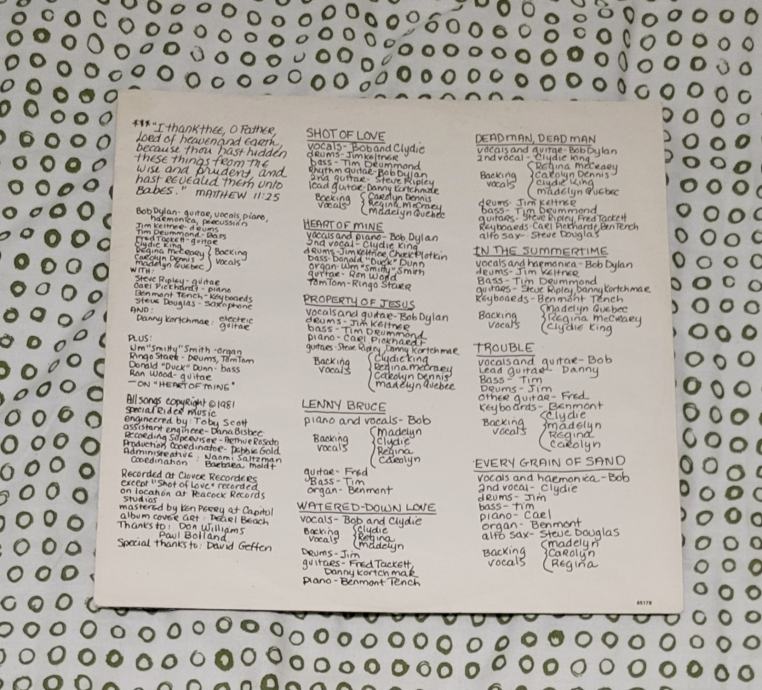 ***"I thank thee, O Father,
Lord of heaven and earth,
because thou hast hidden
these things from the
wise and prudent, and
hast revealed them unto
babes." MATTHEW 11:25
Bob Dylan- guitar, vocals, piano,
harmonica, percussion
Jim Keltner- drums
Tim Drummond- Bass
Fred Tackett- guitar
Clydie King
Regina McCreary
Carolyn Dennis
Madelyn Quebec
Backing
Vocals
WITH:
Steve Ripley- guitar
Carl Pickhardt- piano
Benmont Tench- Keyboards
Steve Douglas- Saxophone
AND:
Danny Kortchmar: electric
guitar
PLUS:
Wm "Smitty" Smith- organ
Ringo Starr- Drums, TomTom
Donald "Duck" Dunn- bass
Ron Wood- guitar
—ON "HEART OF MINE"
All songs copyright ©1981
Special Rider Music
engineered by: Toby Scott
assistant engineer- Dana Bisbee
Recording Supervisor- Arthur Rosato
Production Coordinator- Debbie Gold
Administrative: Naomi Saltzman
Coordination Barbara Moldt
Recorded at Clover Recorders
except "Shot of Love" recorded
on location at Peacock Records
Studios
mastered by Ken Perry at Capitol
album cover art: Pearl Beach
Thanks to: Don Williams
Paul Bolland
Special thanks to: David Geffen
SHOT OF LOVE
vocals- Bob and Clydie
drums- Jim Keltner
bass- Tim Drummond
Rhythm guitar- Bob Dylan
2nd guitar- Steve Ripley
lead guitar- Danny Kortchmar
Backing
Vocals
Carolyn Dennis
Regina McCreary
Madelyn Quebec
HEART OF MINE
vocals and piano- Bob Dylan
2nd vocal- Clydie King
drums- Jim Keltner, Chuck Plotkin
bass- Donald "Duck" Dunn
organ- Wm "Smitty" Smith
guitar- Ron Wood
TomTom- Ringo Starr
PROPERTY OF JESUS
vocals and guitar- Bob Dylan
drums- Jim Keltner
bass- Tim Drummond
piano- Carl Pickhardt
guitars- Steve Ripley, Danny Kortchmar
Backing
vocals
Clydie King
Regina McCreary
Carolyn Dennis
Madelyn Quebec
LENNY BRUCE
piano and vocals- Bob
Backing
vocals
Madelyn
Clydie
Regina
Carolyn
guitar- Fred
Bass- Tim
organ- Benmont
WATERED-DOWN LOVE
vocals- Bob and Clydie
Backing
vocals
Clydie
Regina
Madelyn
Drums- Jim
guitars- Fred Tackett,
Danny Kortchmar
piano- Benmont Tench
DEAD MAN, DEAD MAN
vocals and guitar- Bob Dylan
2nd vocal- Clydie King
Backing
vocals
Regina McCreary
Carolyn Dennis
Clydie King
Madelyn Quebec
drums- Jim Keltner
bass- Tim Drummond
guitars- Steve Ripley, Fred Tackett
Keyboards- Carl Pickhardt, Ben Tench
alto sax- Steve Douglas
IN THE SUMMERTIME
vocals and harmonica- Bob Dylan
drums- Jim Keltner
Bass- Tim Drummond
guitars- Steve Ripley, Danny Kortchmar
Keyboards- Benmont Tench
Backing
Vocals
Madelyn Quebec
Regina McCreary
Clydie King
TROUBLE
vocals and guitar- Bob
Lead guitar- Danny
Bass- Tim
Drums- Jim
other guitar- Fred
Keyboards- Benmont
Backing
vocals
Clydie
Madelyn
Regina
Carolyn
EVERY GRAIN OF SAND
vocals and harmonica- Bob
2nd vocal- Clydie
drums- Jim
bass- Tim
piano- Carl
organ- Benmont
alto sax- Steve Douglas
Backing
vocals
Madelyn
Carolyn
Regina
85178